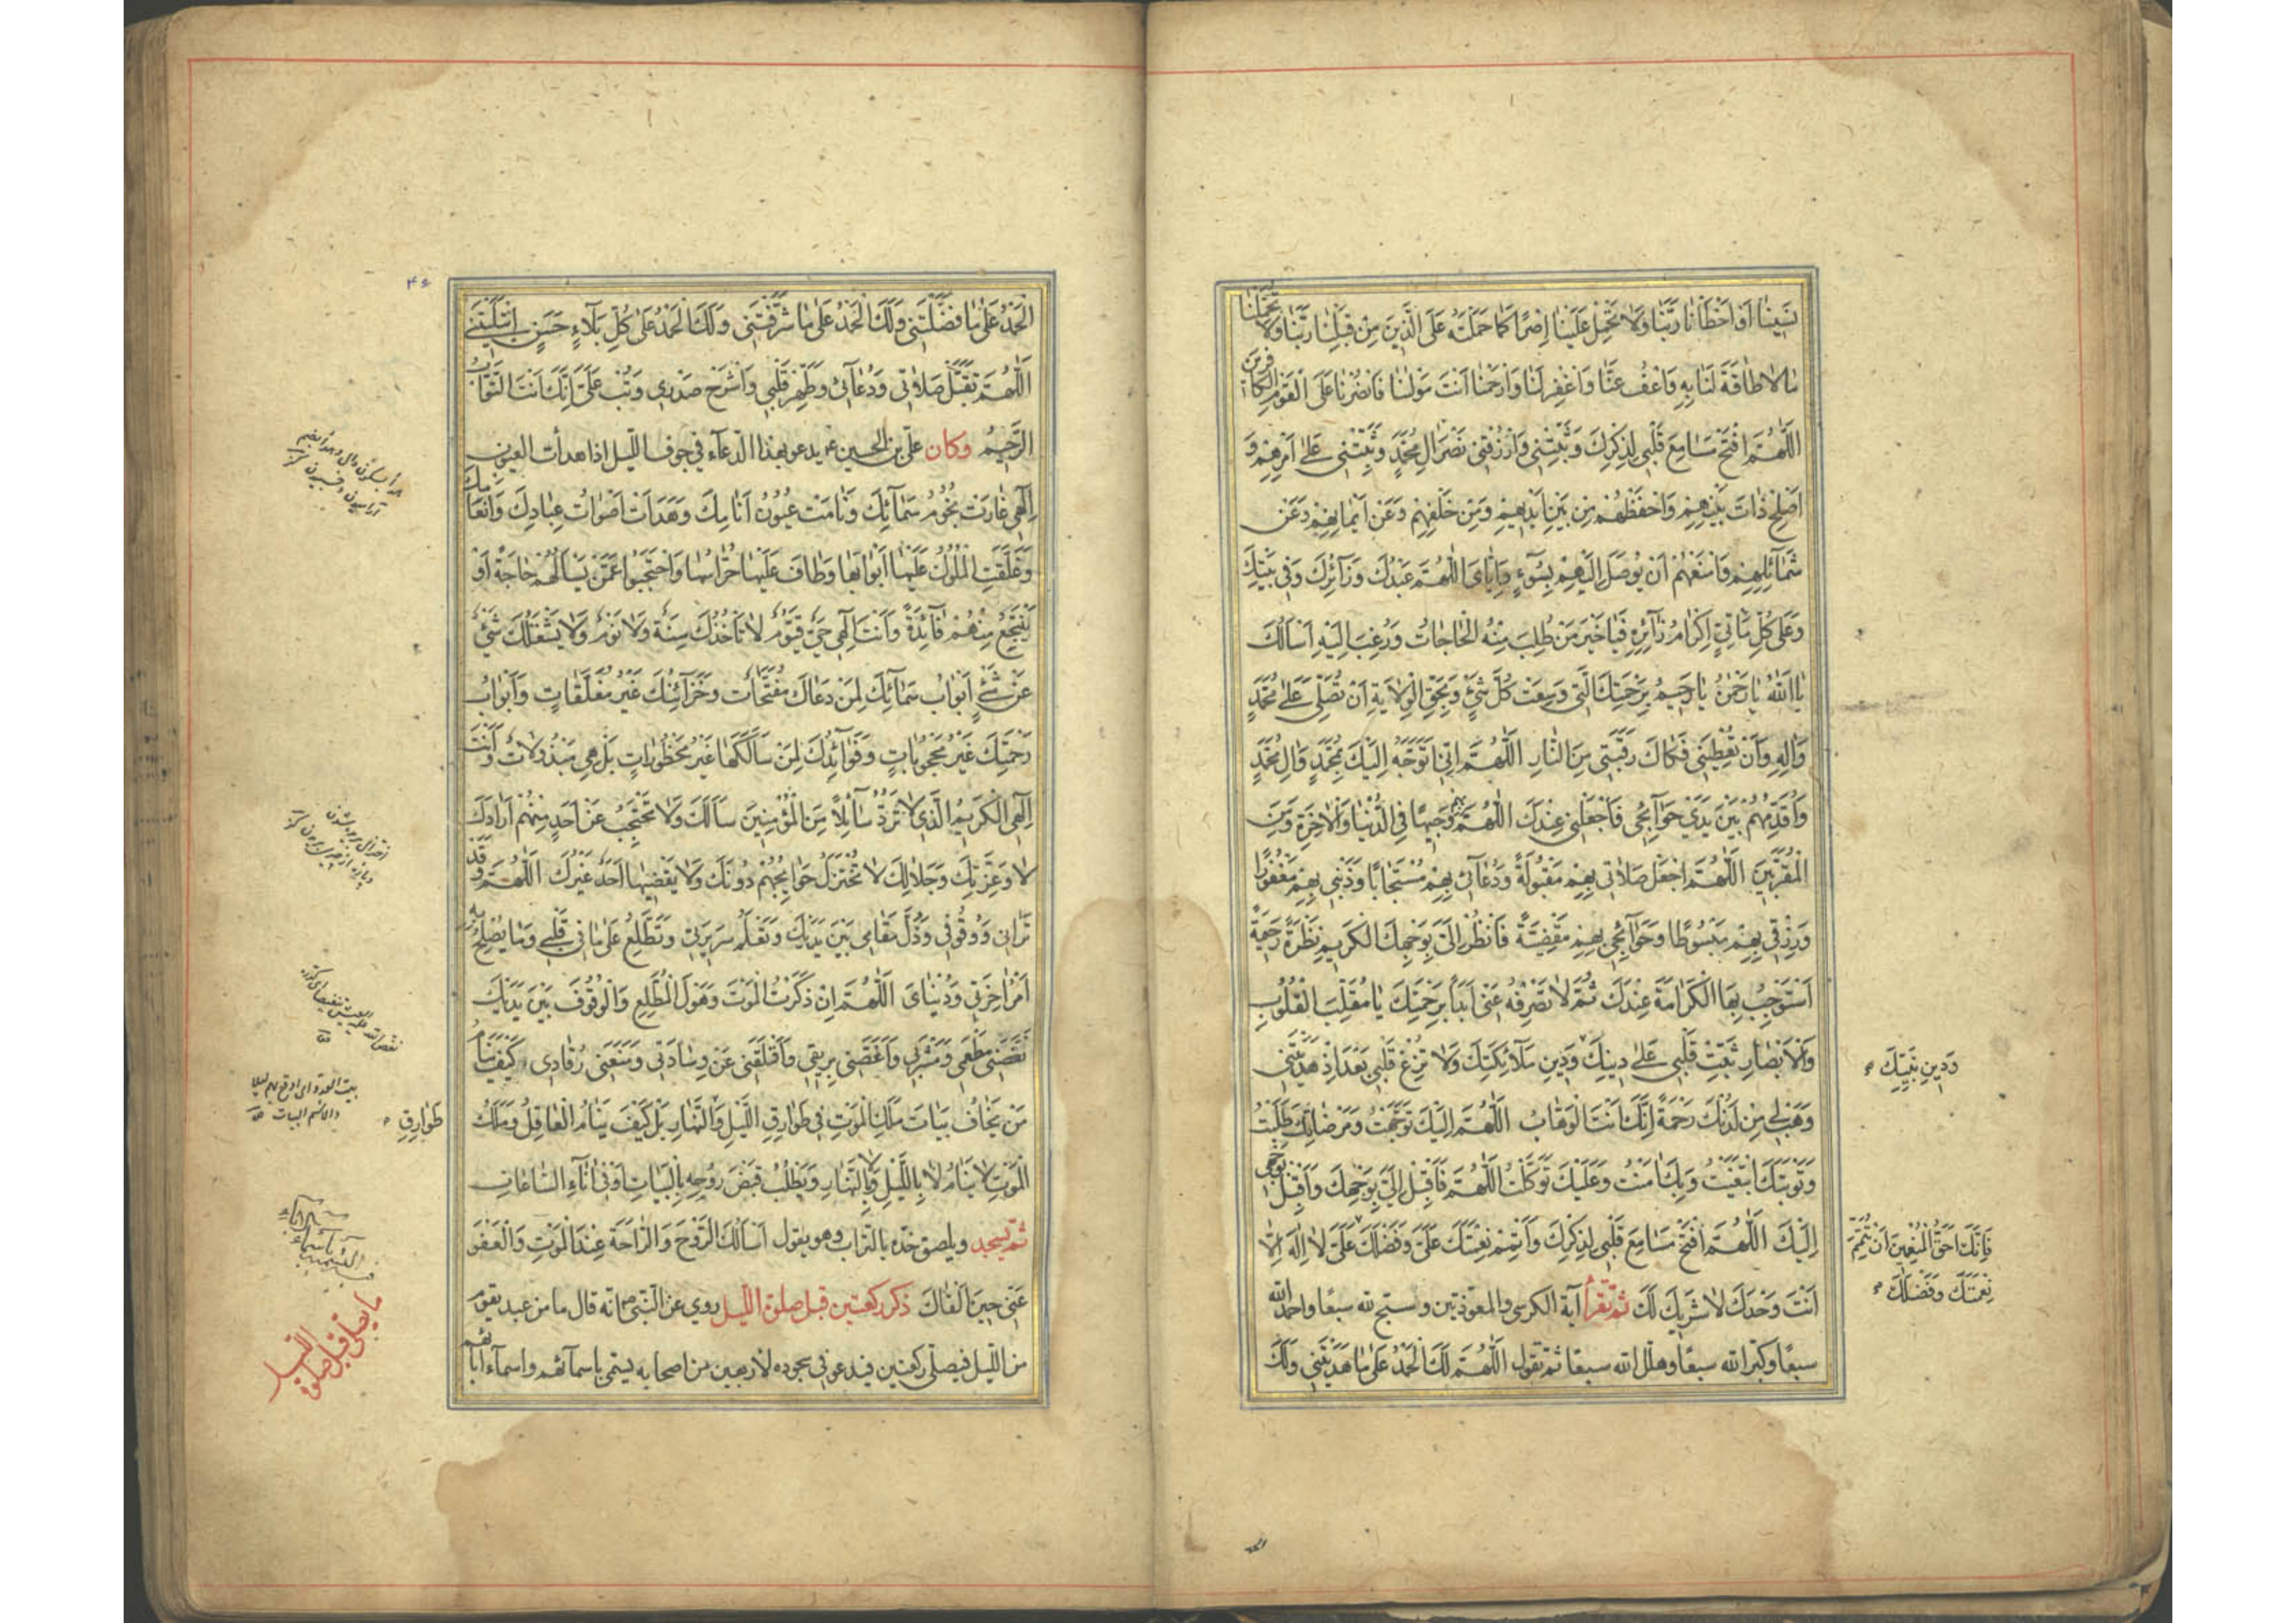 نَسِينَا أَوْ أَخْطَأْنَا رَبَّنَا وَلَا تَحْمِلْ عَلَيْنَا إِصْرًا كَمَا حَمَلْتَهُ عَلَى الَّذِينَ مِنْ قَبْلِنَا رَبَّنَا وَلَا تُحَمِّلْنَا
مَا لَا طَاقَةَ لَنَا بِهِ وَاعْفُ عَنَّا وَاغْفِرْ لَنَا وَارْحَمْنَا أَنْتَ مَوْلَانَا فَانْصُرْنَا عَلَى الْقَوْمِ الْكَافِرِينَ
اللَّهُمَّ افْتَحْ مَسَامِعَ قَلْبِي لِذِكْرِكَ وَثَبِّتْنِي وَارْزُقْنِي نَصْرَ آلِ مُحَمَّدٍ وَثَبِّتْنِي عَلَى أَمْرِهِمْ وَ
أَصْلِحْ ذَاتَ بَيْنِهِمْ وَاحْفَظْهُمْ مِنْ بَيْنِ أَيْدِيهِمْ وَمِنْ خَلْفِهِمْ وَعَنْ أَيْمَانِهِمْ وَعَنْ
شَمَائِلِهِمْ وَامْنَعْهُمْ أَنْ يُوصَلَ إِلَيْهِمْ بِسُوءٍ وَإِيَّايَ اللَّهُمَّ عَبْدُكَ وَزَائِرُكَ وَفِي بَيْتِكَ
وَعَلَى كُلِّ مَأْتِيٍّ إِكْرَامُ زَائِرِهِ فَيَا خَيْرَ مَنْ طُلِبَ مِنْهُ الْحَاجَاتُ وَرُغِبَ إِلَيْهِ أَسْأَلُكَ
يَا اللَّهُ يَا رَحْمٰنُ يَا رَحِيمُ بِرَحْمَتِكَ الَّتِي وَسِعَتْ كُلَّ شَيْءٍ وَبِحَقِّ الْوِلَايَةِ أَنْ تُصَلِّيَ عَلَى مُحَمَّدٍ
وَآلِهِ وَأَنْ تُعْطِيَنِي فَكَاكَ رَقَبَتِي مِنَ النَّارِ اللَّهُمَّ إِنِّي أَتَوَجَّهُ إِلَيْكَ بِمُحَمَّدٍ وَآلِ مُحَمَّدٍ
وَأُقَدِّمُهُمْ بَيْنَ يَدَيْ حَوَائِجِي فَاجْعَلْنِي عِنْدَكَ اللَّهُمَّ بِهِمْ وَجِيهًا فِي الدُّنْيَا وَالْآخِرَةِ وَمِنَ
الْمُقَرَّبِينَ اللَّهُمَّ اجْعَلْ صَلَاتِي بِهِمْ مَقْبُولَةً وَدُعَائِي بِهِمْ مُسْتَجَابًا وَذَنْبِي بِهِمْ مَغْفُورًا
وَرِزْقِي بِهِمْ مَبْسُوطًا وَحَوَائِجِي بِهِمْ مَقْضِيَّةً فَانْظُرْ إِلَيَّ بِوَجْهِكَ الْكَرِيمِ نَظْرَةً رَحِيمَةً
أَسْتَوْجِبُ بِهَا الْكَرَامَةَ عِنْدَكَ ثُمَّ لَا تَصْرِفْهُ عَنِّي أَبَدًا بِرَحْمَتِكَ يَا مُقَلِّبَ الْقُلُوبِ
وَالْأَبْصَارِ ثَبِّتْ قَلْبِي عَلَى دِينِكَ وَدِينِ مَلَائِكَتِكَ وَلَا تُزِغْ قَلْبِي بَعْدَ إِذْ هَدَيْتَنِي
وَدِينِ نَبِيِّكَ
وَهَبْ لِي مِنْ لَدُنْكَ رَحْمَةً إِنَّكَ أَنْتَ الْوَهَّابُ اللَّهُمَّ إِلَيْكَ تَوَجَّهْتُ وَمَرْضَاتِكَ طَلَبْتُ
وَثَوَابَكَ ابْتَغَيْتُ وَبِكَ آمَنْتُ وَعَلَيْكَ تَوَكَّلْتُ اللَّهُمَّ فَأَقْبِلْ إِلَيَّ بِوَجْهِكَ وَأَقْبِلْ بِوَجْهِي
إِلَيْكَ اللَّهُمَّ افْتَحْ مَسَامِعَ قَلْبِي لِذِكْرِكَ وَأَتْمِمْ نِعْمَتَكَ عَلَيَّ وَفَضْلَكَ عَلَيَّ لَا إِلَهَ إِلَّا
فَإِنَّكَ أَحَقُّ الْمُنْعِمِينَ أَنْ تُتَمِّمَ
نِعْمَتَكَ وَفَضْلَكَ
أَنْتَ وَحْدَكَ لَا شَرِيكَ لَكَ ثُمَّ تَقْرَأُ آية الكرسي والمعوذتين وتسبح لله سبعًا واحمد الله
سبعًا وكبر الله سبعًا وهلل الله سبعًا ثم تقول اللَّهُمَّ لَكَ الْحَمْدُ عَلَى مَا هَدَيْتَنِي وَلَكَ
الحمد
۴۶
الْحَمْدُ عَلَى مَا فَضَّلْتَنِي وَلَكَ الْحَمْدُ عَلَى مَا شَرَّفْتَنِي وَلَكَ الْحَمْدُ عَلَى كُلِّ بَلَاءٍ حَسَنٍ ابْتَلَيْتَنِي
اللَّهُمَّ تَقَبَّلْ صَلَاتِي وَدُعَائِي وَطَهِّرْ قَلْبِي وَاشْرَحْ صَدْرِي وَتُبْ عَلَيَّ إِنَّكَ أَنْتَ التَّوَّابُ
الرَّحِيمُ وكان علي بن الحسين ع يدعو بهذا الدعاء في جوف الليل إذا هدأت العيون
إِلَهِي غَارَتْ نُجُومُ سَمَائِكَ وَنَامَتْ عُيُونُ أَنَامِكَ وَهَدَأَتْ أَصْوَاتُ عِبَادِكَ وَأَنْعَامِكَ
وَغَلَّقَتِ الْمُلُوكُ عَلَيْهَا أَبْوَابَهَا وَطَافَ عَلَيْهَا حُرَّاسُهَا وَاحْتَجَبُوا عَمَّنْ يَسْأَلُهُمْ حَاجَةً أَوْ
يَنْتَجِعُ مِنْهُمْ فَائِدَةً وَأَنْتَ إِلَهِي حَيٌّ قَيُّومٌ لَا تَأْخُذُكَ سِنَةٌ وَلَا نَوْمٌ وَلَا يَشْغَلُكَ شَيْءٌ
عَنْ شَيْءٍ أَبْوَابُ سَمَائِكَ لِمَنْ دَعَاكَ مُفَتَّحَاتٌ وَخَزَائِنُكَ غَيْرُ مُغَلَّقَاتٍ وَأَبْوَابُ
رَحْمَتِكَ غَيْرُ مَحْجُوبَاتٍ وَفَوَائِدُكَ لِمَنْ سَأَلَكَهَا غَيْرُ مَحْظُورَاتٍ بَلْ هِيَ مَبْذُولَاتٌ وَأَنْتَ
إِلَهِي الْكَرِيمُ الَّذِي لَا تَرُدُّ سَائِلًا مِنَ الْمُؤْمِنِينَ سَأَلَكَ وَلَا تَحْتَجِبُ عَنْ أَحَدٍ مِنْهُمْ أَرَادَكَ
لَا وَعِزَّتِكَ وَجَلَالِكَ لَا تُخْتَزَلُ حَوَائِجُهُمْ دُونَكَ وَلَا يَقْضِيهَا أَحَدٌ غَيْرُكَ اللَّهُمَّ وَقَدْ
تَرَانِي وَوُقُوفِي وَذُلَّ مَقَامِي بَيْنَ يَدَيْكَ وَتَعْلَمُ سَرِيرَتِي وَتَطَّلِعُ عَلَى مَا فِي قَلْبِي وَمَا يُصْلِحُ بِهِ
أَمْرُ آخِرَتِي وَدُنْيَايَ اللَّهُمَّ إِنْ ذَكَرْتُ الْمَوْتَ وَهَوْلَ الْمُطَّلَعِ وَالْوُقُوفَ بَيْنَ يَدَيْكَ
نَغَّصَنِي مَطْعَمِي وَمَشْرَبِي وَأَغَصَّنِي بِرِيقِي وَأَقْلَقَنِي عَنْ وِسَادَتِي وَمَنَعَنِي رُقَادِي، كَيْفَ يَنَامُ
مَنْ يَخَافُ بَيَاتَ مَلَكِ الْمَوْتِ فِي طَوَارِقِ اللَّيْلِ وَالنَّهَارِ بَلْ كَيْفَ يَنَامُ الْعَاقِلُ وَمَلَكُ
طَوَارِقِ
الْمَوْتِ لَا يَنَامُ لَا بِاللَّيْلِ وَلَا بِالنَّهَارِ وَيَطْلُبُ قَبْضَ رُوحِهِ بِالْبَيَاتِ أَوْ فِي آنَاءِ السَّاعَاتِ
ثم يسجد ويلصق خده بالتراب وهو يقول أَسْأَلُكَ الرَّوْحَ وَالرَّاحَةَ عِنْدَ الْمَوْتِ وَالْعَفْوَ
عَنِّي حِينَ أَلْقَاكَ ذكر ركعتين قبل صلوة الليل روي عن النبي ص انه قال ما من عبد يقوم
من الليل فيصلي ركعتين فيدعو في سجوده لاربعين من اصحابه يسمي باسمائهم واسماء آبائهم
ما يصلى قبل صلوة الليل